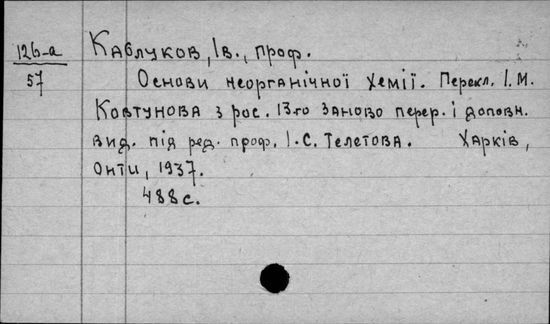 126-а
57
Каблуков, Ів., проф.
Основи неорганічної хемії. Перекл. І.М.
Ковтунова з рос. 13-го заново перер. і доповн.
вид. під ред. проф. І.С. Телетова. Харків,
Онти, 1937.
488 с.